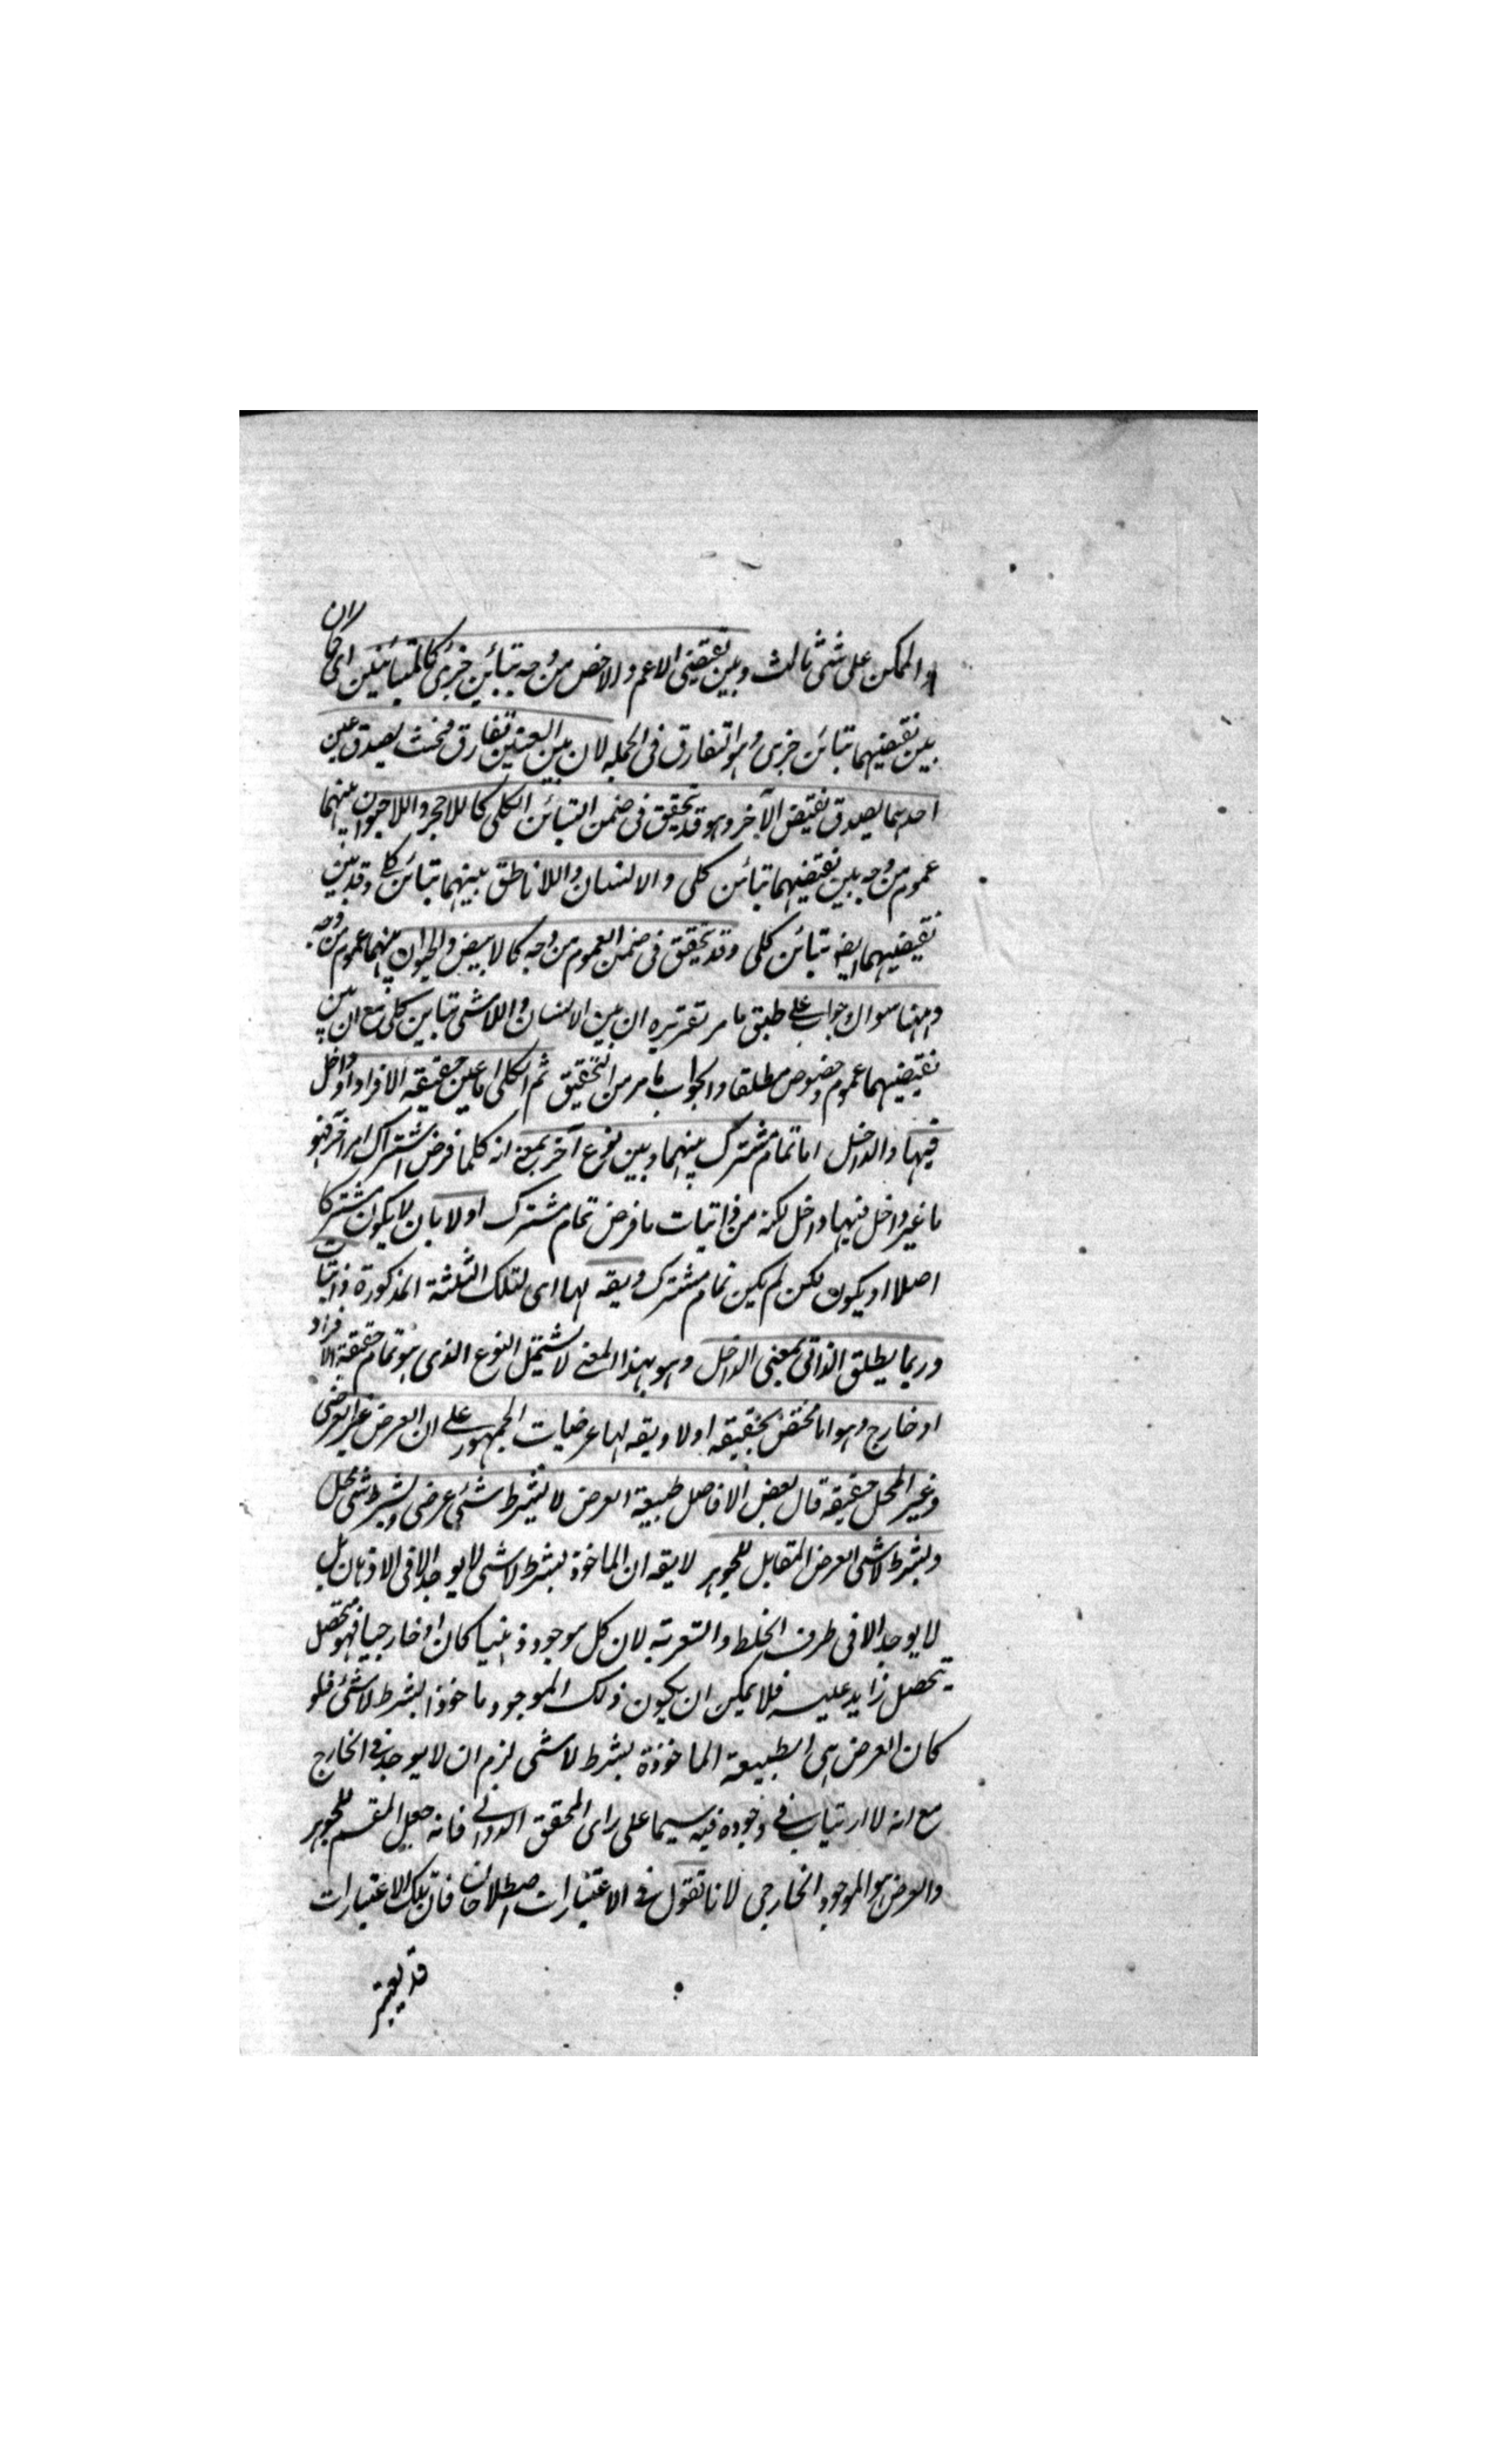 والممكن على شئ ثالث وبين نقيضى الاعم والاخص من وجه تبائن جزئ كالمتبائنين اى كما ان
بين نقيضيهما تبائن جزئ وهو التفارق فى الجمله لان بين العينين تفارق فحيث يصدق عين
احدهما يصدق نقيض الآخر وهو قد تحقيق فى ضمن التبائن الكلى كاللاحجر واللاحيوان بينهما
عموم من وجه بين نقيضيهما تبائن كلى والانسان واللاناطق بينهما تبائن كلى وقد بين
نقيضيهما ايضه تبائن كلى وقد تحقق فى ضمن العموم من وجه كالابيض والحيوان بينهما عموم من وجه
وههنا سوال وجواب على طبق ما مر تقريره ان بين الانسان واللاشى تباين كلى مع ان بين
نقيضيهما عموم وخصوص مطلقا والجواب ما مر من التحقيق ثم الكلى اما عين حقيقه الافراد او داخل
فيها والداخل اما تمام مشترك بينهما وبين نوع آخر بمعنى انه كلما فرض اشتراك امر آخر فهو
ما غير داخل فيها او داخل لكنه من ذاتيات ما فرض تمام مشترك اولا بان لا يكون مشتركا
اصلا او يكون لكن لم يكن تمام مشترك ويقه لها اى لتلك الثلثة المذكورة ذاتيات
وربما يطلق الذاتى بمعنى الداخل وهو بهذا المعنى لا يشتمل النوع الذى هو تمام حقيقة الافراد
او خارج وهو اما مختص بحقيقه اولا ويقه لها عرضيات الجمهور على ان العرض غير العرضى
وغير المحل حقيقه قال بعض الافاضل طبيعة العرض لا بشرط شئ عرضى وبشرط شئ محل
وبشرط لاشى العرض المقابل للجوهر لا يقه ان الماخوذ بشرط لاشى لا يوجد الا فى الاذهان بل
لا يوجد الا فى ظرف الخلط والتعرية لان كل موجود ذهنيا كان او خارجيا فهو متحصل
يتحصل زايد عليه فلا يمكن ان يكون ذلك الموجود ماخوذا بشرط لاشئ فلو
كان العرض هى الطبيعة الماخوذة بشرط لاشى لزم ان لا يوجد فى الخارج
مع انه لا ارتياب فى وجوده فيه سيما على راى المحقق الدوانى فانه جعل المقسم للجوهر
والعرض هو الموجود الخارجى لانا نقول فى الاعتبارات اصطلاحان فان تلك الاعتبارات
قد يعتبر